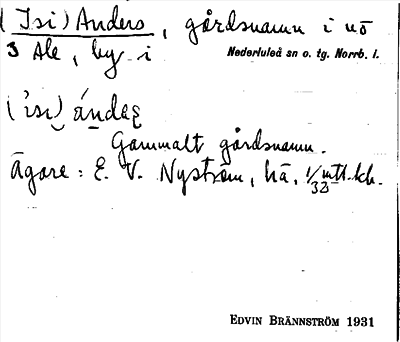 (Isi) Anders, gårdsnamn i nö
3 Ale, by i Nederluleå sn o. tg. Norrb. l.
Gammalt gårdsnamn.
Ägare: E. V. Nyström, hä, 1/32 mtl.
EDVIN BRÄNNSTRÖM 1931